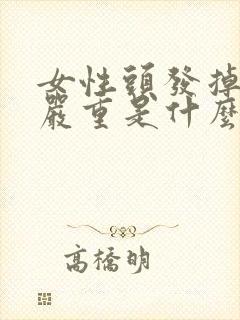 女性頭發掉
嚴重是什麼
高橋明